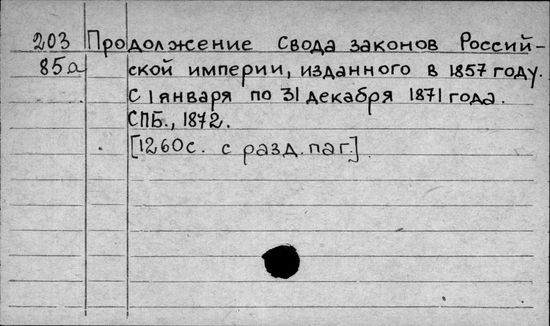 203 Продолжение Свода законов Россий-
85а ской империи, изданного в 1857 году.
С 1 января по 31 декабря 1871 года.
СПБ., 1872.
[1260с. с разд. паг.]